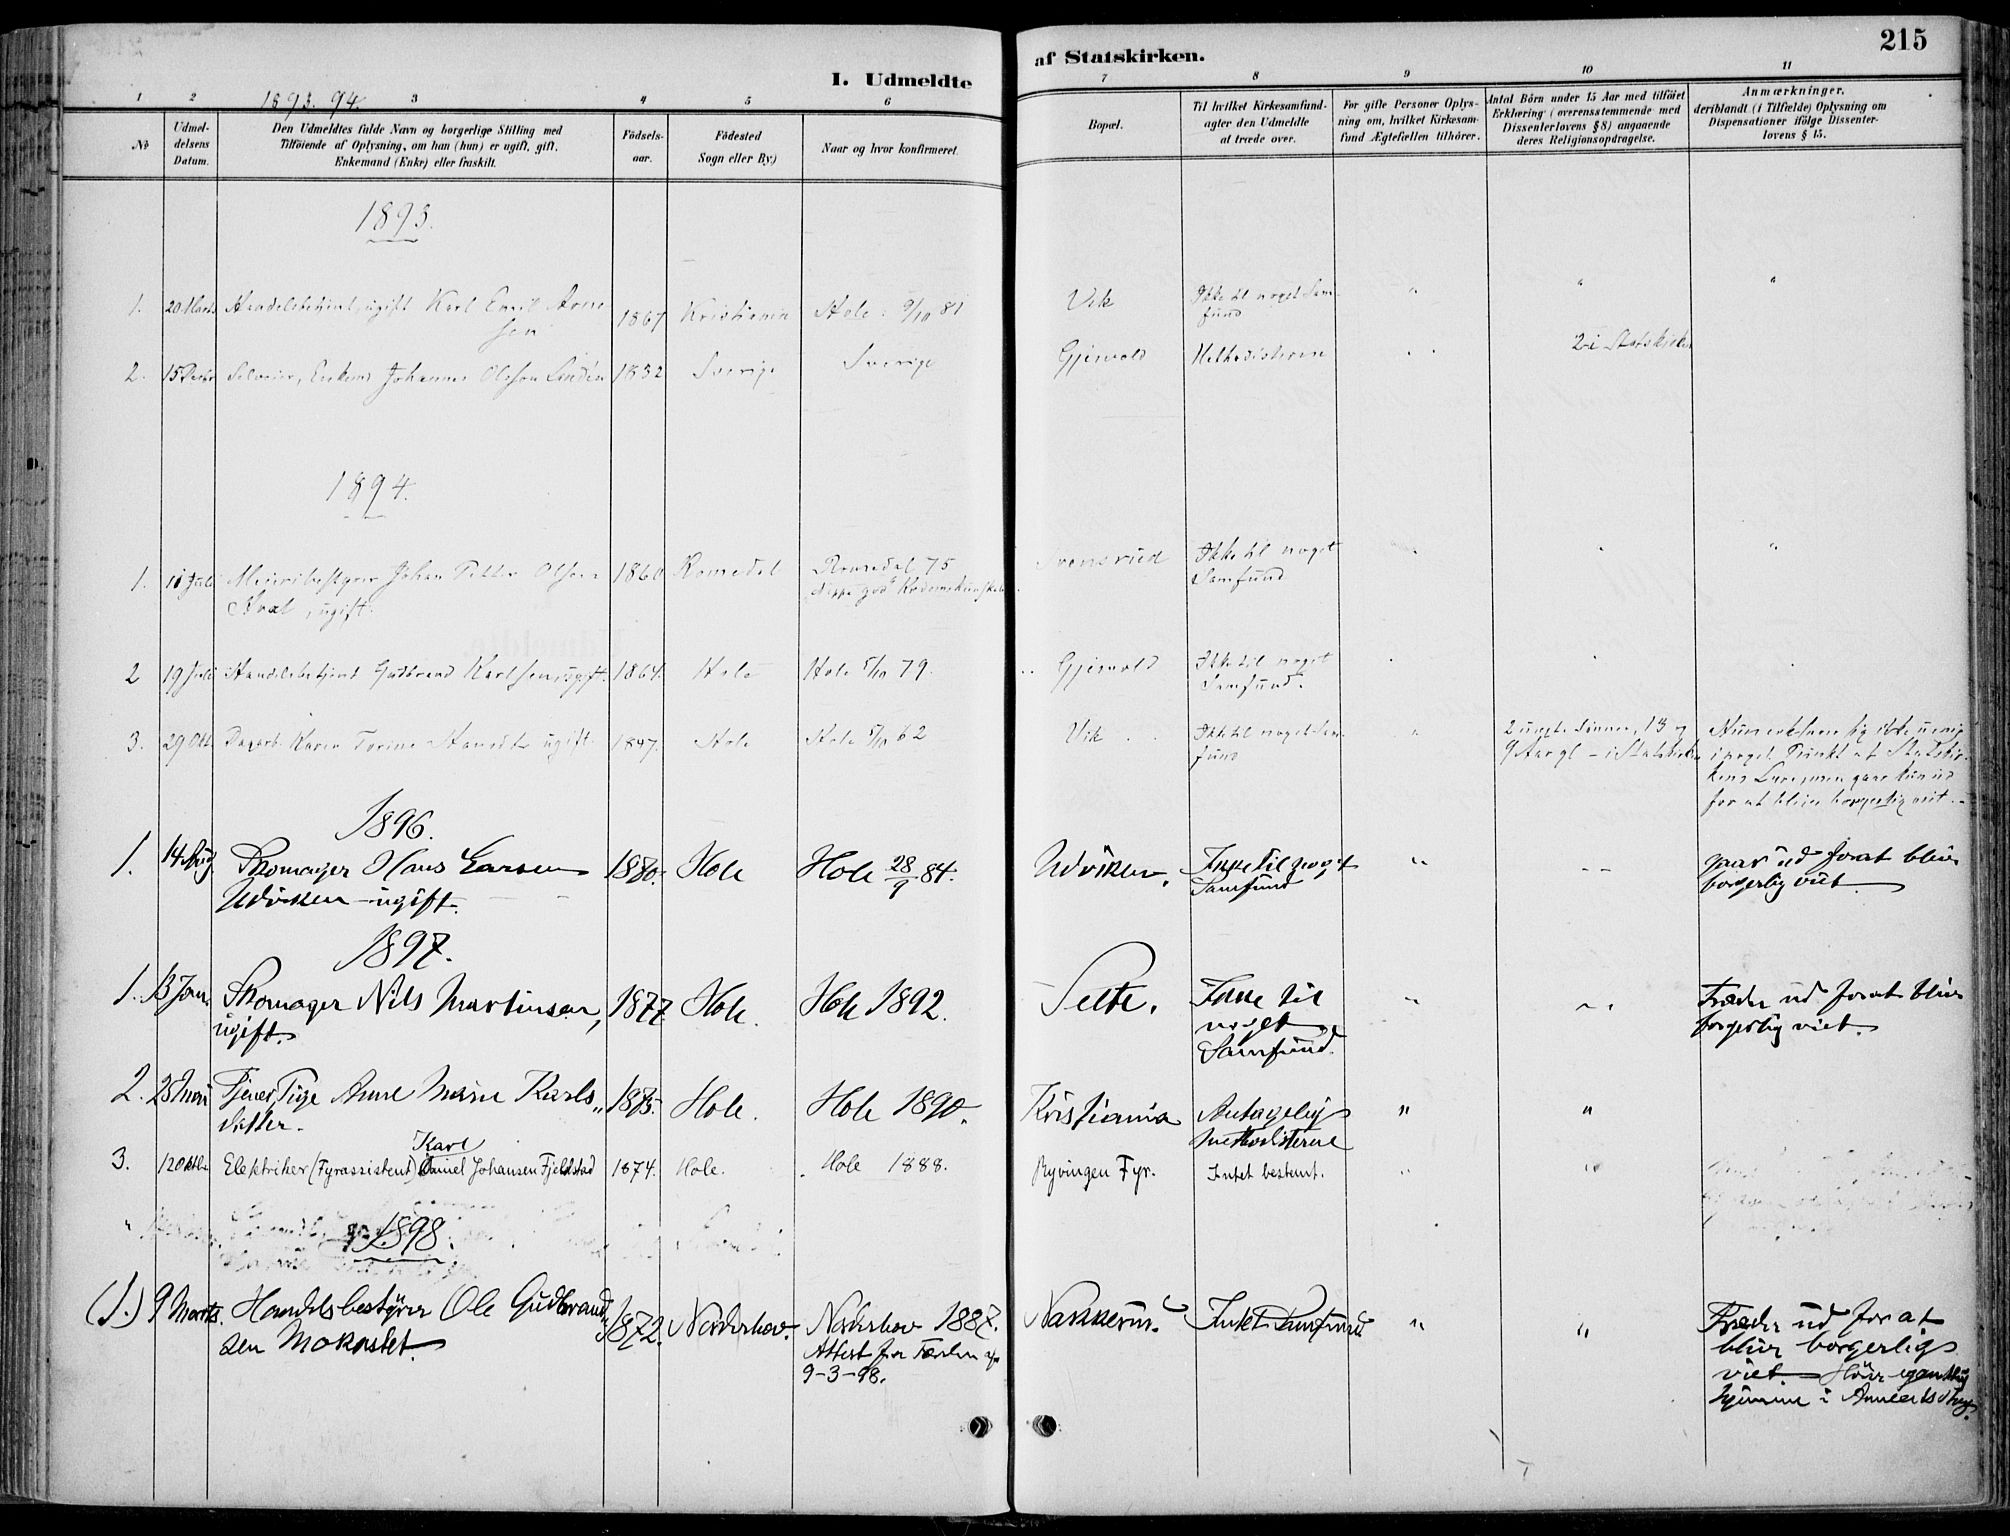 215
I. Udmeldte af Statskirken.
1893. 94.
1 2 3 4 5 6 7 8 9 10 11
No
Udmeldelsens Datum.
Den Udmeldtes fulde Navn og borgerlige Stilling med Tilføiende af Oplysning, om han (hun) er ugift, gift, Enkemand (Enke) eller fraskilt.
Fødselsaar.
Fødested Sogn eller By)
Naar og hvor konfirmeret
Bopæl.
Til hvilket Kirkesamfund agter den Udmeldte at træde over.
For gifte Personer Oplysning om, hvilket Kirkesamfund Ægtefællen tilhører.
Antal Børn under 15 Aar med tilføiet Erklæring (overensstemmende med Dissenterlovens § 8) angaaende deres Religionsopdragelse.
Anmærkninger, deriblandt (i Tilfælde) Oplysning om Dispensationer ifølge Dissenterlovens § 15.
1893.
1. 20 Marts Handelsbetjent, ugift Karl Emil Arnesen 1867 Kristiania Hole 9/10 81 Vik Ikke til noget Samfund " " "
2. 15 Decbr Selveier, Enkem. Johannes Olsson Lindén 1832 Sverige Sverige Gjesvold Methodisterne 2 i Statskirken
1894.
1. Juli Meieribestyrer Johan Petter Olsen
ugift. 1860 Romedal Romedal 75
Svensrud Ikke til noget Samfund
2 19 Juli Handelsbetjent Gudbrand Karlsen, ugift. 1864. Hole Hole 5/10 79. Gjesvold Ikke til noget Samfund.
3. 29 Okt. Dagarb. Karen Torine ugift. 1847. Hole Hole 5/10 62 Vik Ikke til noget Samfund
2 uægte Sønner, 13 og 9 Aar gl. – i Statskirken
Hun erklærer sig ikke uenig i noget Punkt af Statskirkens Lære, men gaar kun ud for at blive borgerlig viet.
1896.
1. 14 Aug Skomager Hans Larsen
Udviken – ugift. 1880. Hole Hole 28/9 84. Udviken. Ikke til noget Samfund " gaar ud forat blive borgerlig viet.
1897.
1. 13 Jan. Skomager Nils Martinsen, ugift. 1877 Hole. Hole 1892. Selte. Ikke til noget Samfund. " Træder ud forat blive borgerlig viet.
2. Tjener, Pige Anne Marie Karlsdatter. 1875. Hole. Hole 1890. Kristiania Antagelig methodisterne " "
3. 12 Oktbr Elektriker (Fyrassistent) Karl Daniel Johansen Fjeldstad 1874. Hole. Hole 1888. Ryvingen Fyr. Intet bestemt. " "
1898.
(1.) 9 Marts. Handelsbestyrer Ole Gudbrandsen Mokastet. 1872. Norderhov. Norderhov 1887.
Attest fra
9–3–98.
Nakkerud. Intet Samfund " "
Træder ud for at blive borgerlig viet.